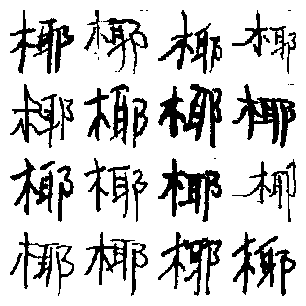 椰椰椰椰
椰椰椰椰
椰椰椰椰
椰椰椰椰